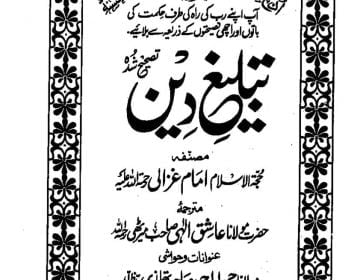 آپ اپنے رب کی راہ کی طرف حکمت کی
باتوں اور اچھی نصیحتوں کے ذریعہ سے بلائیے۔
تصحیح شدہ
تبلیغِ دین
مصنفہ
حجۃ الاسلام امام غزالی رحمۃ اللہ علیہ
مترجمہ
حضرت مولانا عاشق الٰہی صاحب میرٹھی رحمہ اللہ
عنوانات و حواشی